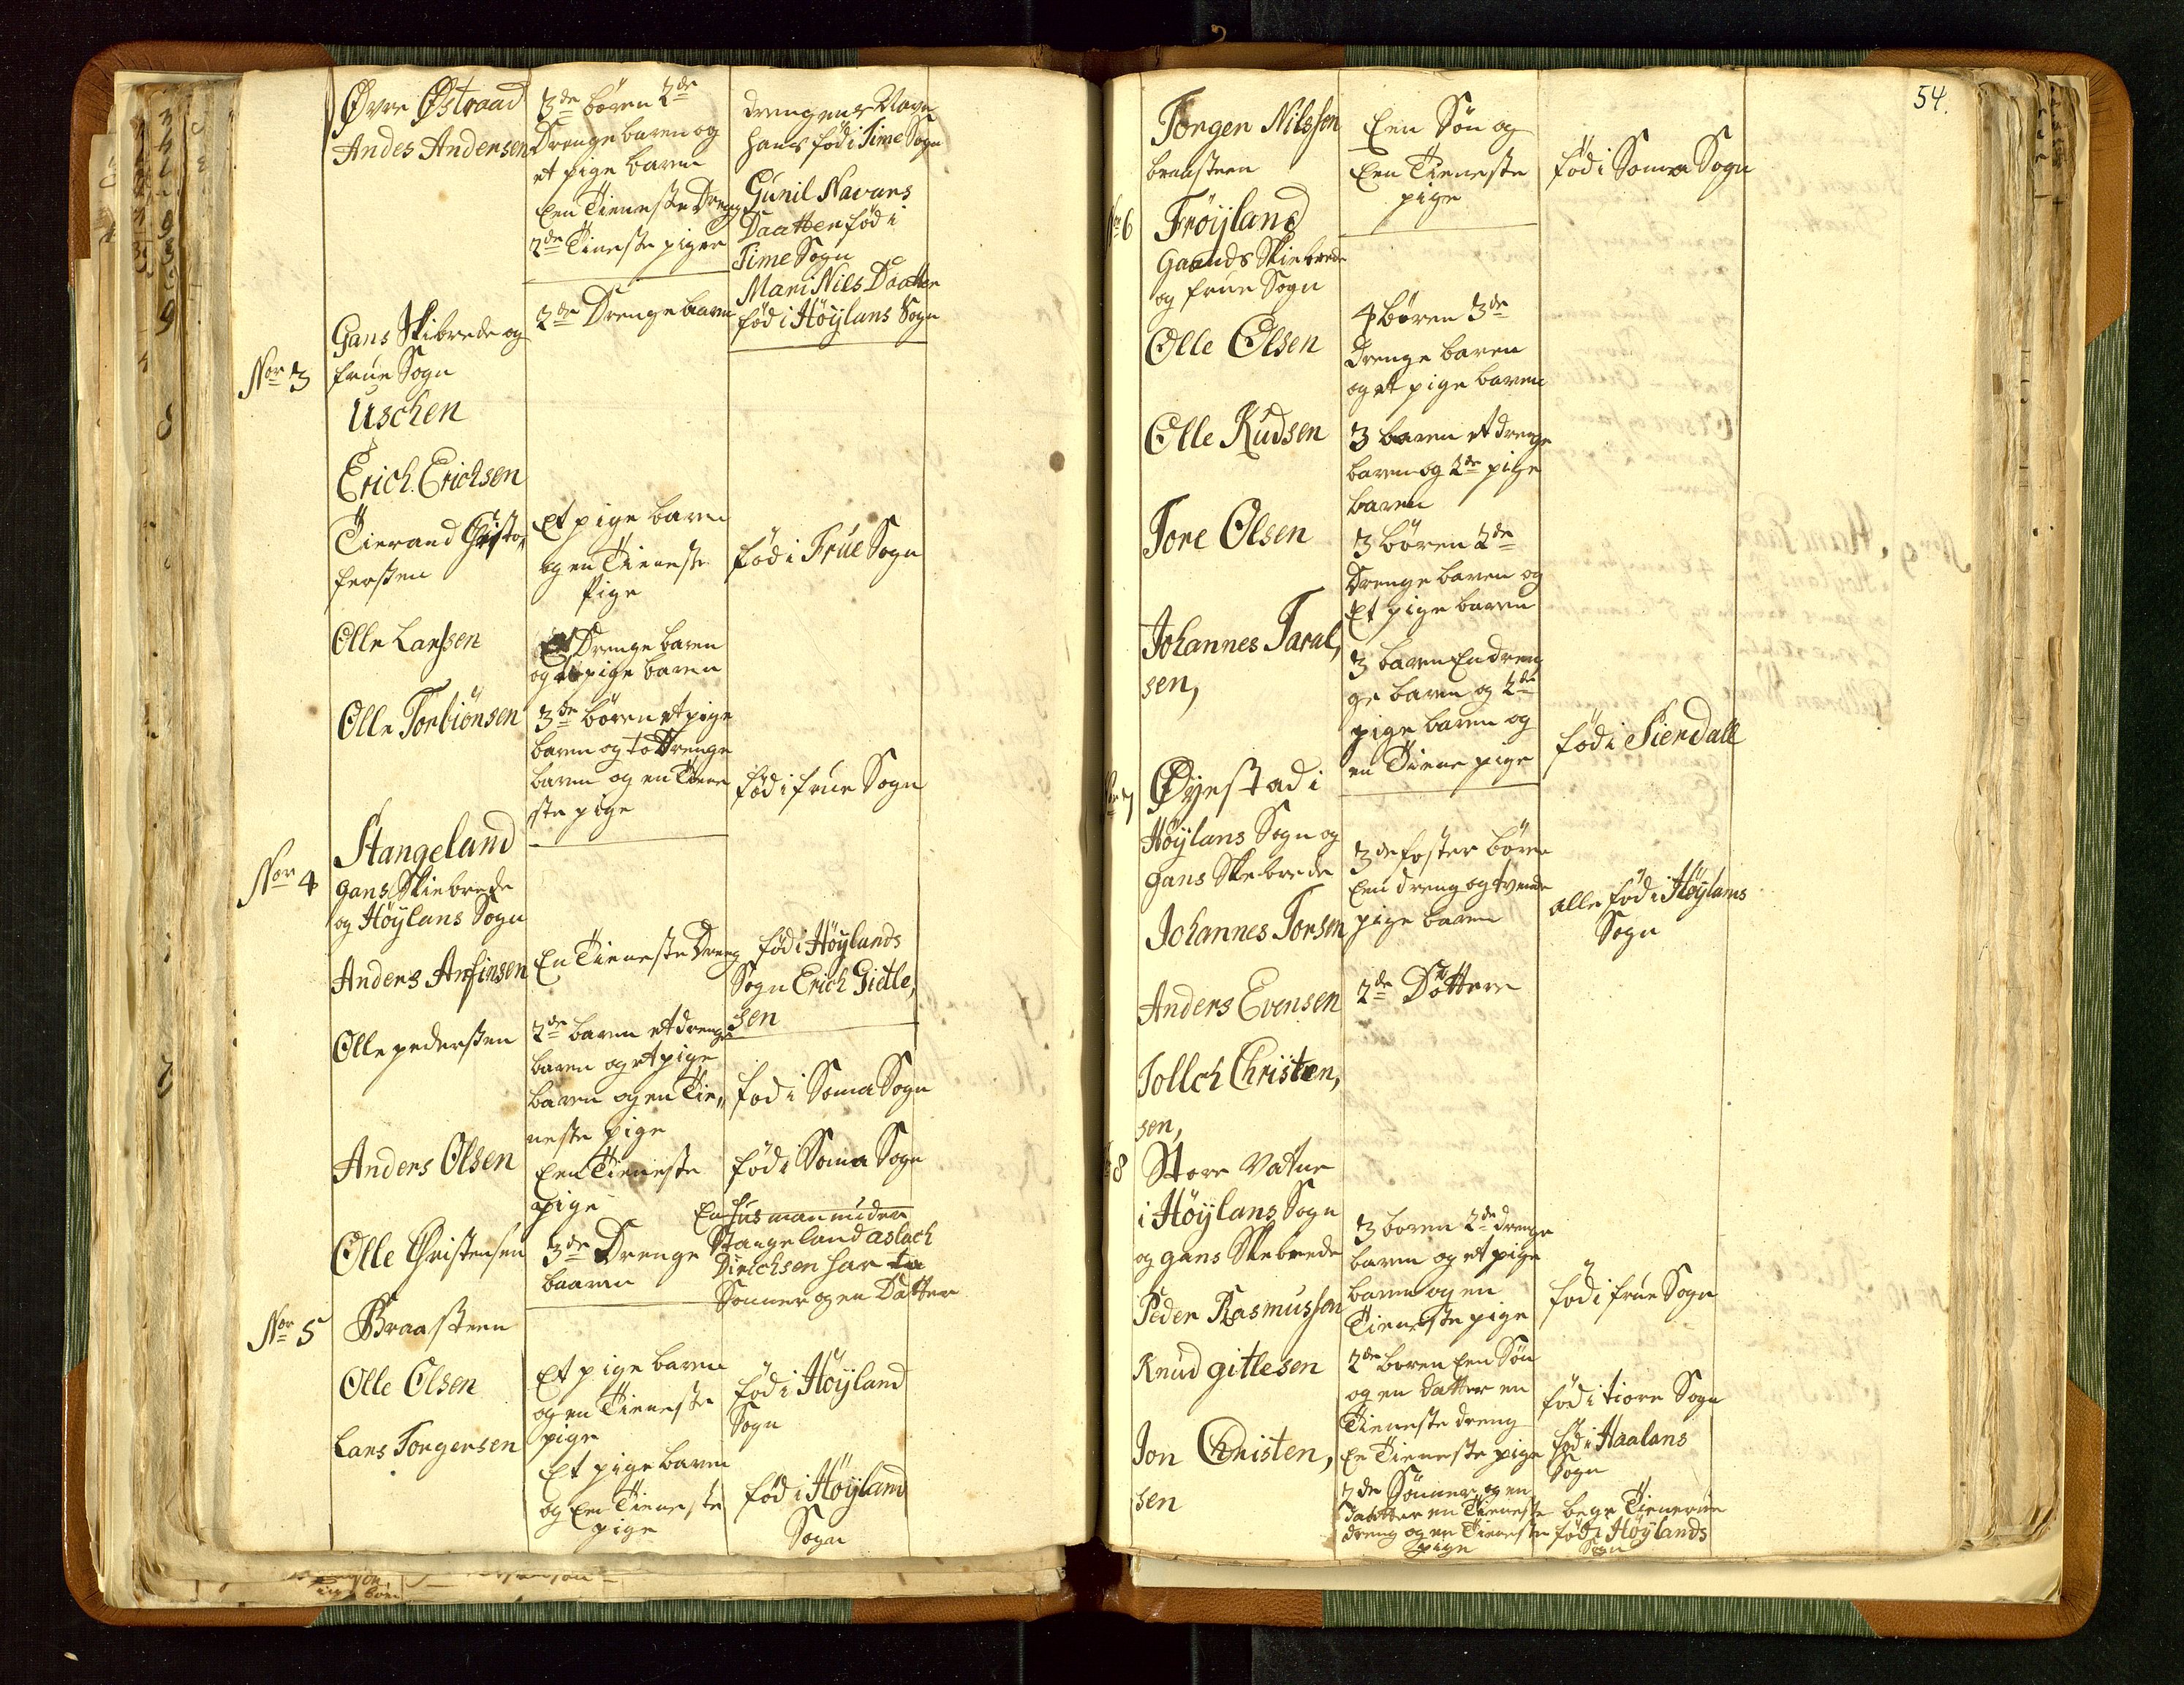 Øvre Østraad
Andes Andersen
3de börn 2de
Drenge baren og
et pige baren
Een Tieneste Dreng
2de Tineste piger
drengens Navn
Hans föd i Time Sogn
Gunil Navars
Daatter föd i
Time Sogn
Mari Nils Daatter
föd i Höylans Sogn
2de Drenge baren
Nor 3
Gans Skibrede og
frue Sogn
Uschen
Erich Erichsen
Tierand Christo,,
ferssen
Et pige baren
og en Tieneste
Pige
föd i Frue Sogn
Olle Larssen
Et Drenge baren
og et pige baren
Olle Torbiönsen
3de börn et pige
baren og to Drenge
baren og en Tiene
ste pige
föd i frue Sogn
Nor 4
Stangeland
gans Skiebrede
og Höylans Sogn
Anders Anfinsen
En Tieneste Dreng
föd i Höylands
Sogn Erich Gietle,
sen
Olle pederssen
2de baren et drenge
baren og et pige
baren og en Tie,,
neste pige
föd i Soma Sogn
Anders Olsen
Een Tieneste
pige
föd i Soma Sogn
Olle Christensen
3de Drenge
baaren
En Husman under
Stangeland aslach
Dirichsen har to
Sonner og en Datter
Nor 5
Braasteen
Olle Olsen
Et pige baren
og en Tieneste
pige
föd i Höyland
Sogn
Lars Torgersen
Et pige baren
og Een Tieneste
pige
föd i Höyland
Sogn
54
Torger Nilssen
braasteen
Een Sön og
Een Tieneste
pige
föd i Soma Sogn
Nr 6
Fröyland
Gaands Skiebrede
og frue Sogn
Olle Olsen
4 börn 3de
Drenge baren
og et pige baren
Olle Kudsen
3 baren et drenge
baren og 2de pige
baren
Tore Olsen
3 börn 2de
Drenge baren og
Et pige baren
Johannes Taral,
sen,
3 baren En dren
ge baren og 2de
pige baren og
en Tiene pige
föd i Siendall
7
Øyestad i
Höylans Sogn og
gans Skebrede
Johannes Torsen
3de foster börn
Een dreng og tvende
pige baren
alle föd i Höylans
Sogn
Anders Evensen
2de Döttere
Tollch Christen,
sen,
8
Store Vatne
i Höylans Sogn
og gans Skebrede
Peder Rasmussen
3 boren 2de drenge
baren og et pige
baren og en
Tieneste pige
föd i frue Sogn
Knud gitlesen
2de boren Een Sön
og en datter en
Tieneste dreng
En Tieneste pige
föd i tiore Sogn
föd i Haalans
Sogn
Jon Christen,
sen
de Sönner og en
datter en Tieneste
dreng og en Tieneste
pige
bege Tienerne
föd i Höylands
Sogn